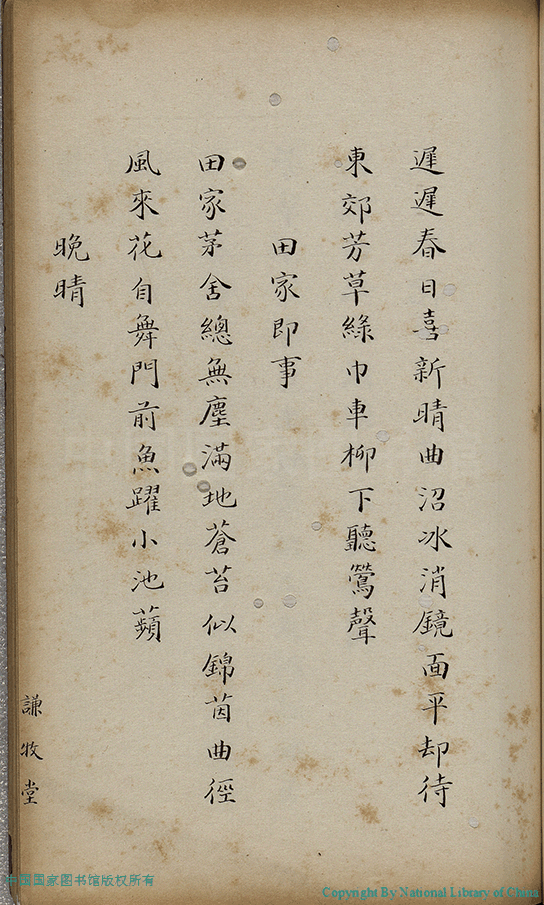 遲遲春日喜新晴曲沼冰消鏡面平却待
東郊芳草綠巾車柳下聽鶯聲
田家即事
田家茅舍總無塵滿地蒼苔似錦茵曲徑
風來花自舞門前魚躍小池蘋
晚晴
謙牧堂
中国国家图书馆版权所有
Copyright By National Library of China